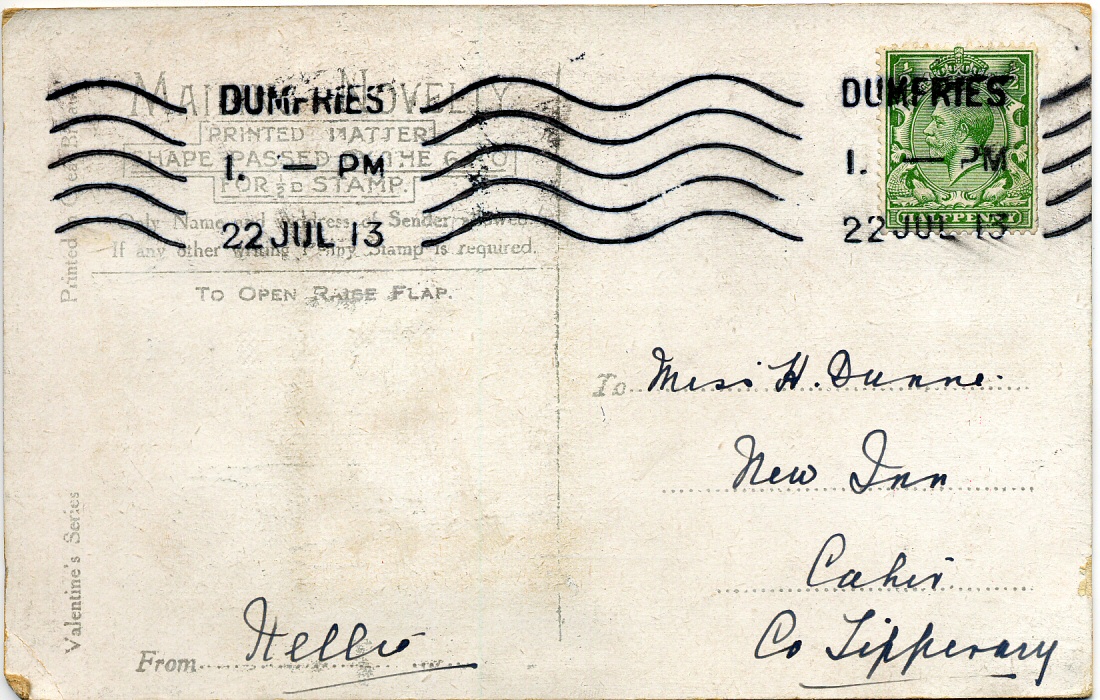 MAILING NOVELTY
PRINTED MATTER
SHAPE PASSED BY THE G.P.O
FOR ½D STAMP.
Only Name and Address of Sender allowed.
If any other writing Penny Stamp is required.
TO OPEN RAISE FLAP.
DUMFRIES
1. — PM
22 JUL 13
DUMFRIES
1. — PM
22 JUL 13
HALFPENNY
Printed in Great Britain
Valentine's Series
To Miss H. Dunne.
New Inn
Cahir
Co Tipperary
From Nellie